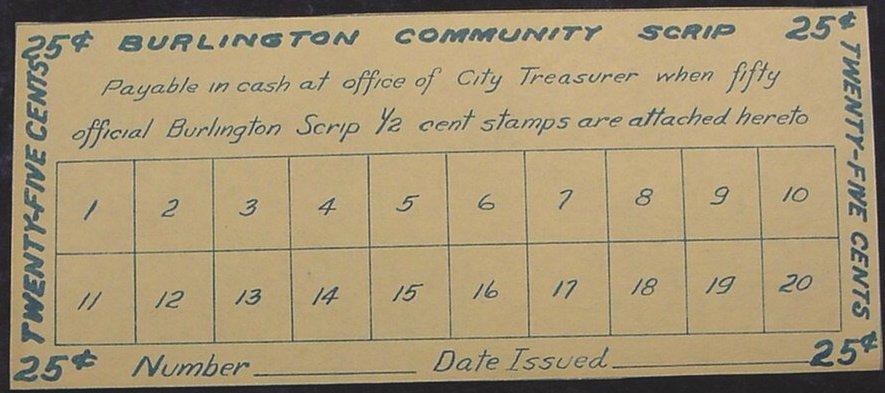 25¢ BURLINGTON COMMUNITY SCRIP 25¢
Payable in cash at office of City Treasurer when fifty
official Burlington Scrip 1/2 cent stamps are attached hereto
TWENTY-FIVE CENTS
1 2 3 4 5 6 7 8 9 10
11 12 13 14 15 16 17 18 19 20
TWENTY-FIVE CENTS
25¢ Number Date Issued 25¢